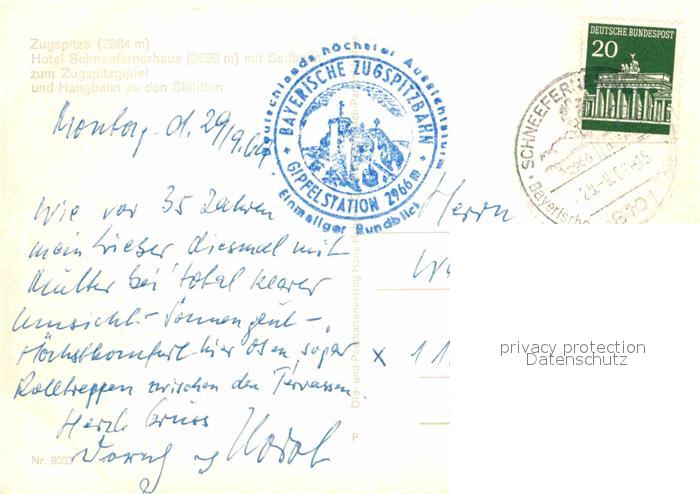 Zugspitze (2964 m)
Hotel Schneefernerhaus (2650 m) mit Seilbahn
zum Zugspitzgipfel
und Hangbahn zu den Skiliften
Deutschlands höchster Aussichtsturm
BAYERISCHE ZUGSPITZBAHN
GIPFELSTATION 2966 m
Einmaliger Rundblick
20 DEUTSCHE BUNDESPOST
SCHNEEFERN
2966
Bayerische
8101
Montag. d. 29/9.69.
Wie vor 35 Jahren
mein lieber diesmal mit
Mutter bei total klarer
Umsicht - Sonnenglut -,
Höchstkomfort hier oben, sogar
Rolltreppen zwischen den Terrassen.
Herzl. Gruss
Herrn
W
x 11
privacy protection
Datenschutz
Nr. 8083
P